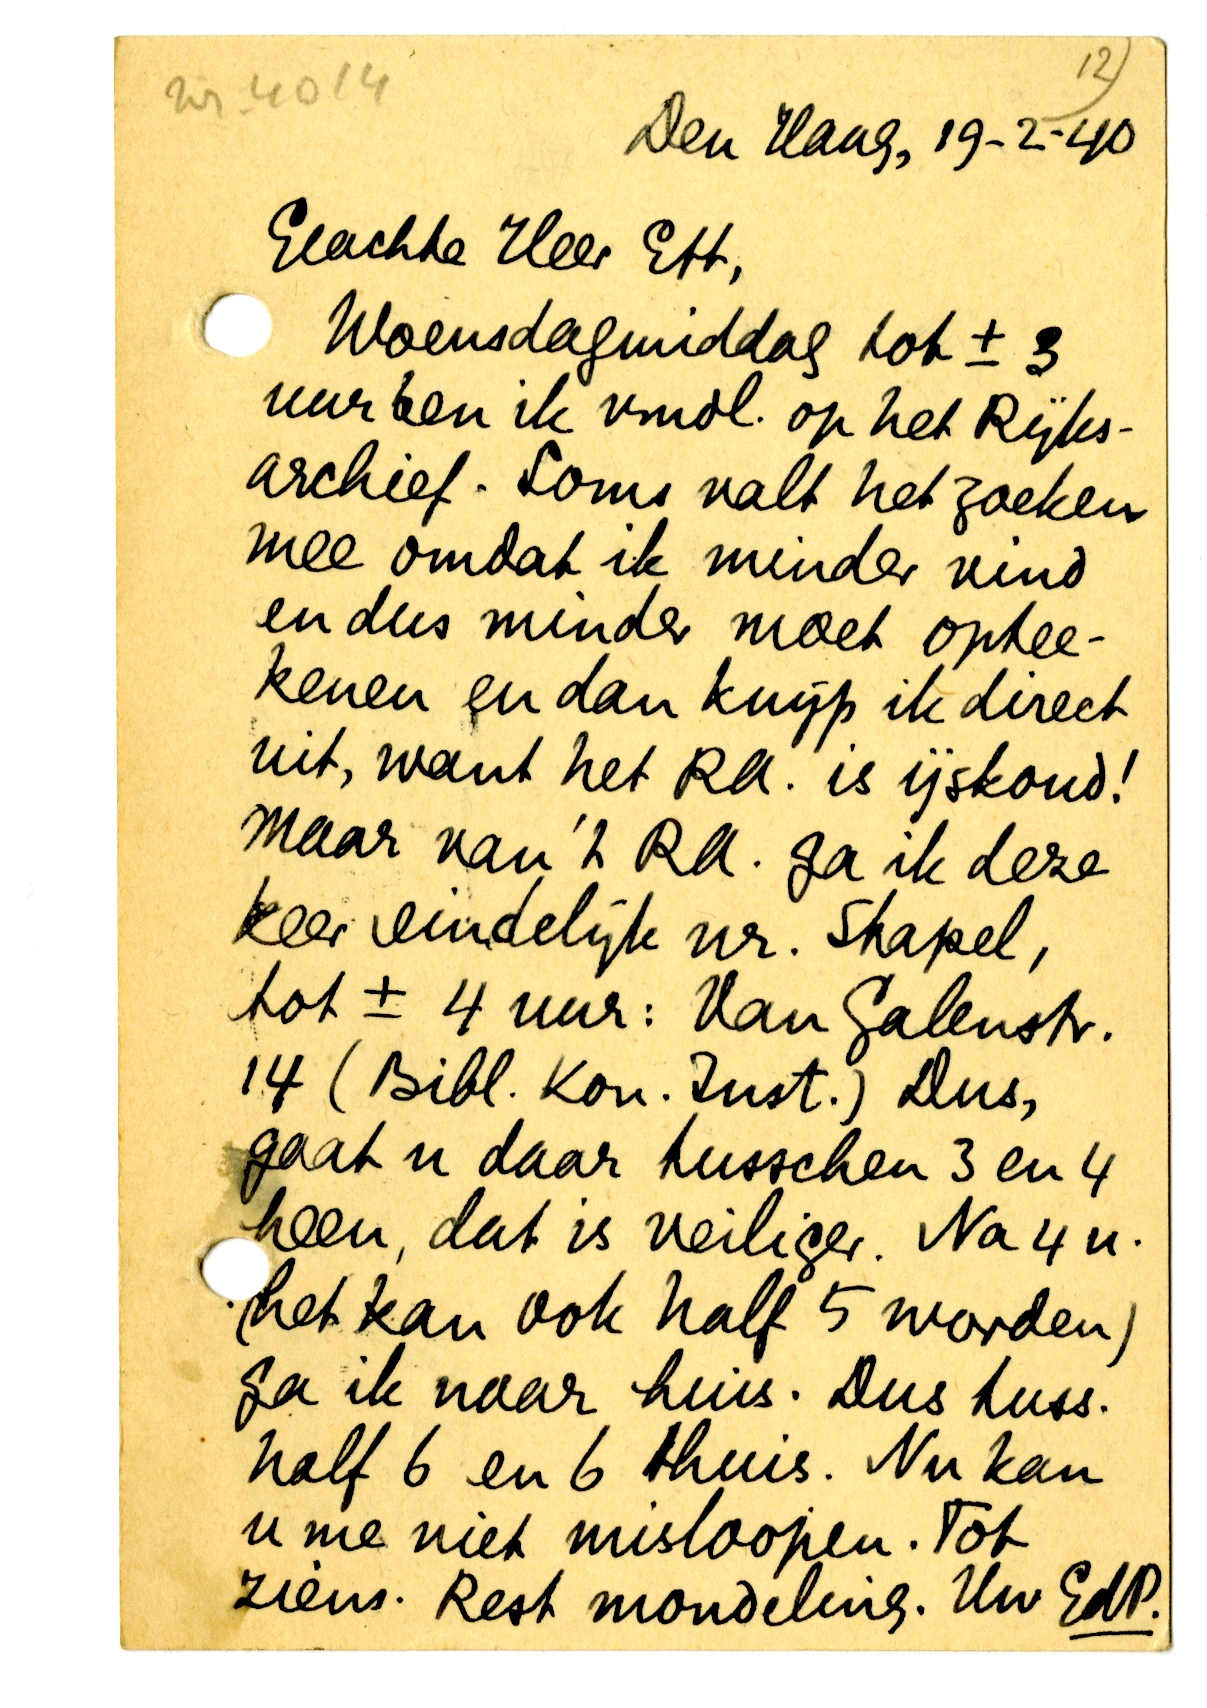 12)
nr 4014
Den Haag, 19-2-40
Geachte Heer Ett,
Woensdagmiddag tot ± 3
uur ben ik vmdl. op het Rijks-
archief. Soms valt het zoeken
mee omdat ik minder vind
en dus minder moet optee-
kenen en dan knijp ik direct
uit, want het RA. is ijskoud!
Maar van 't RA. ga ik deze
keer eindelijk nr. Stapel,
tot ± 4 uur: Van Galenstr.
14 (Bibl. Kon. Inst.) Dus,
gaat u daar tusschen 3 en 4
heen, dat is veiliger. Na 4 u.
(het kan ook half 5 worden)
ga ik naar huis. Dus tuss.
half 6 en 6 thuis. Nu kan
u me niet misloopen. Tot
ziens. Rest mondeling. Uw EdP.